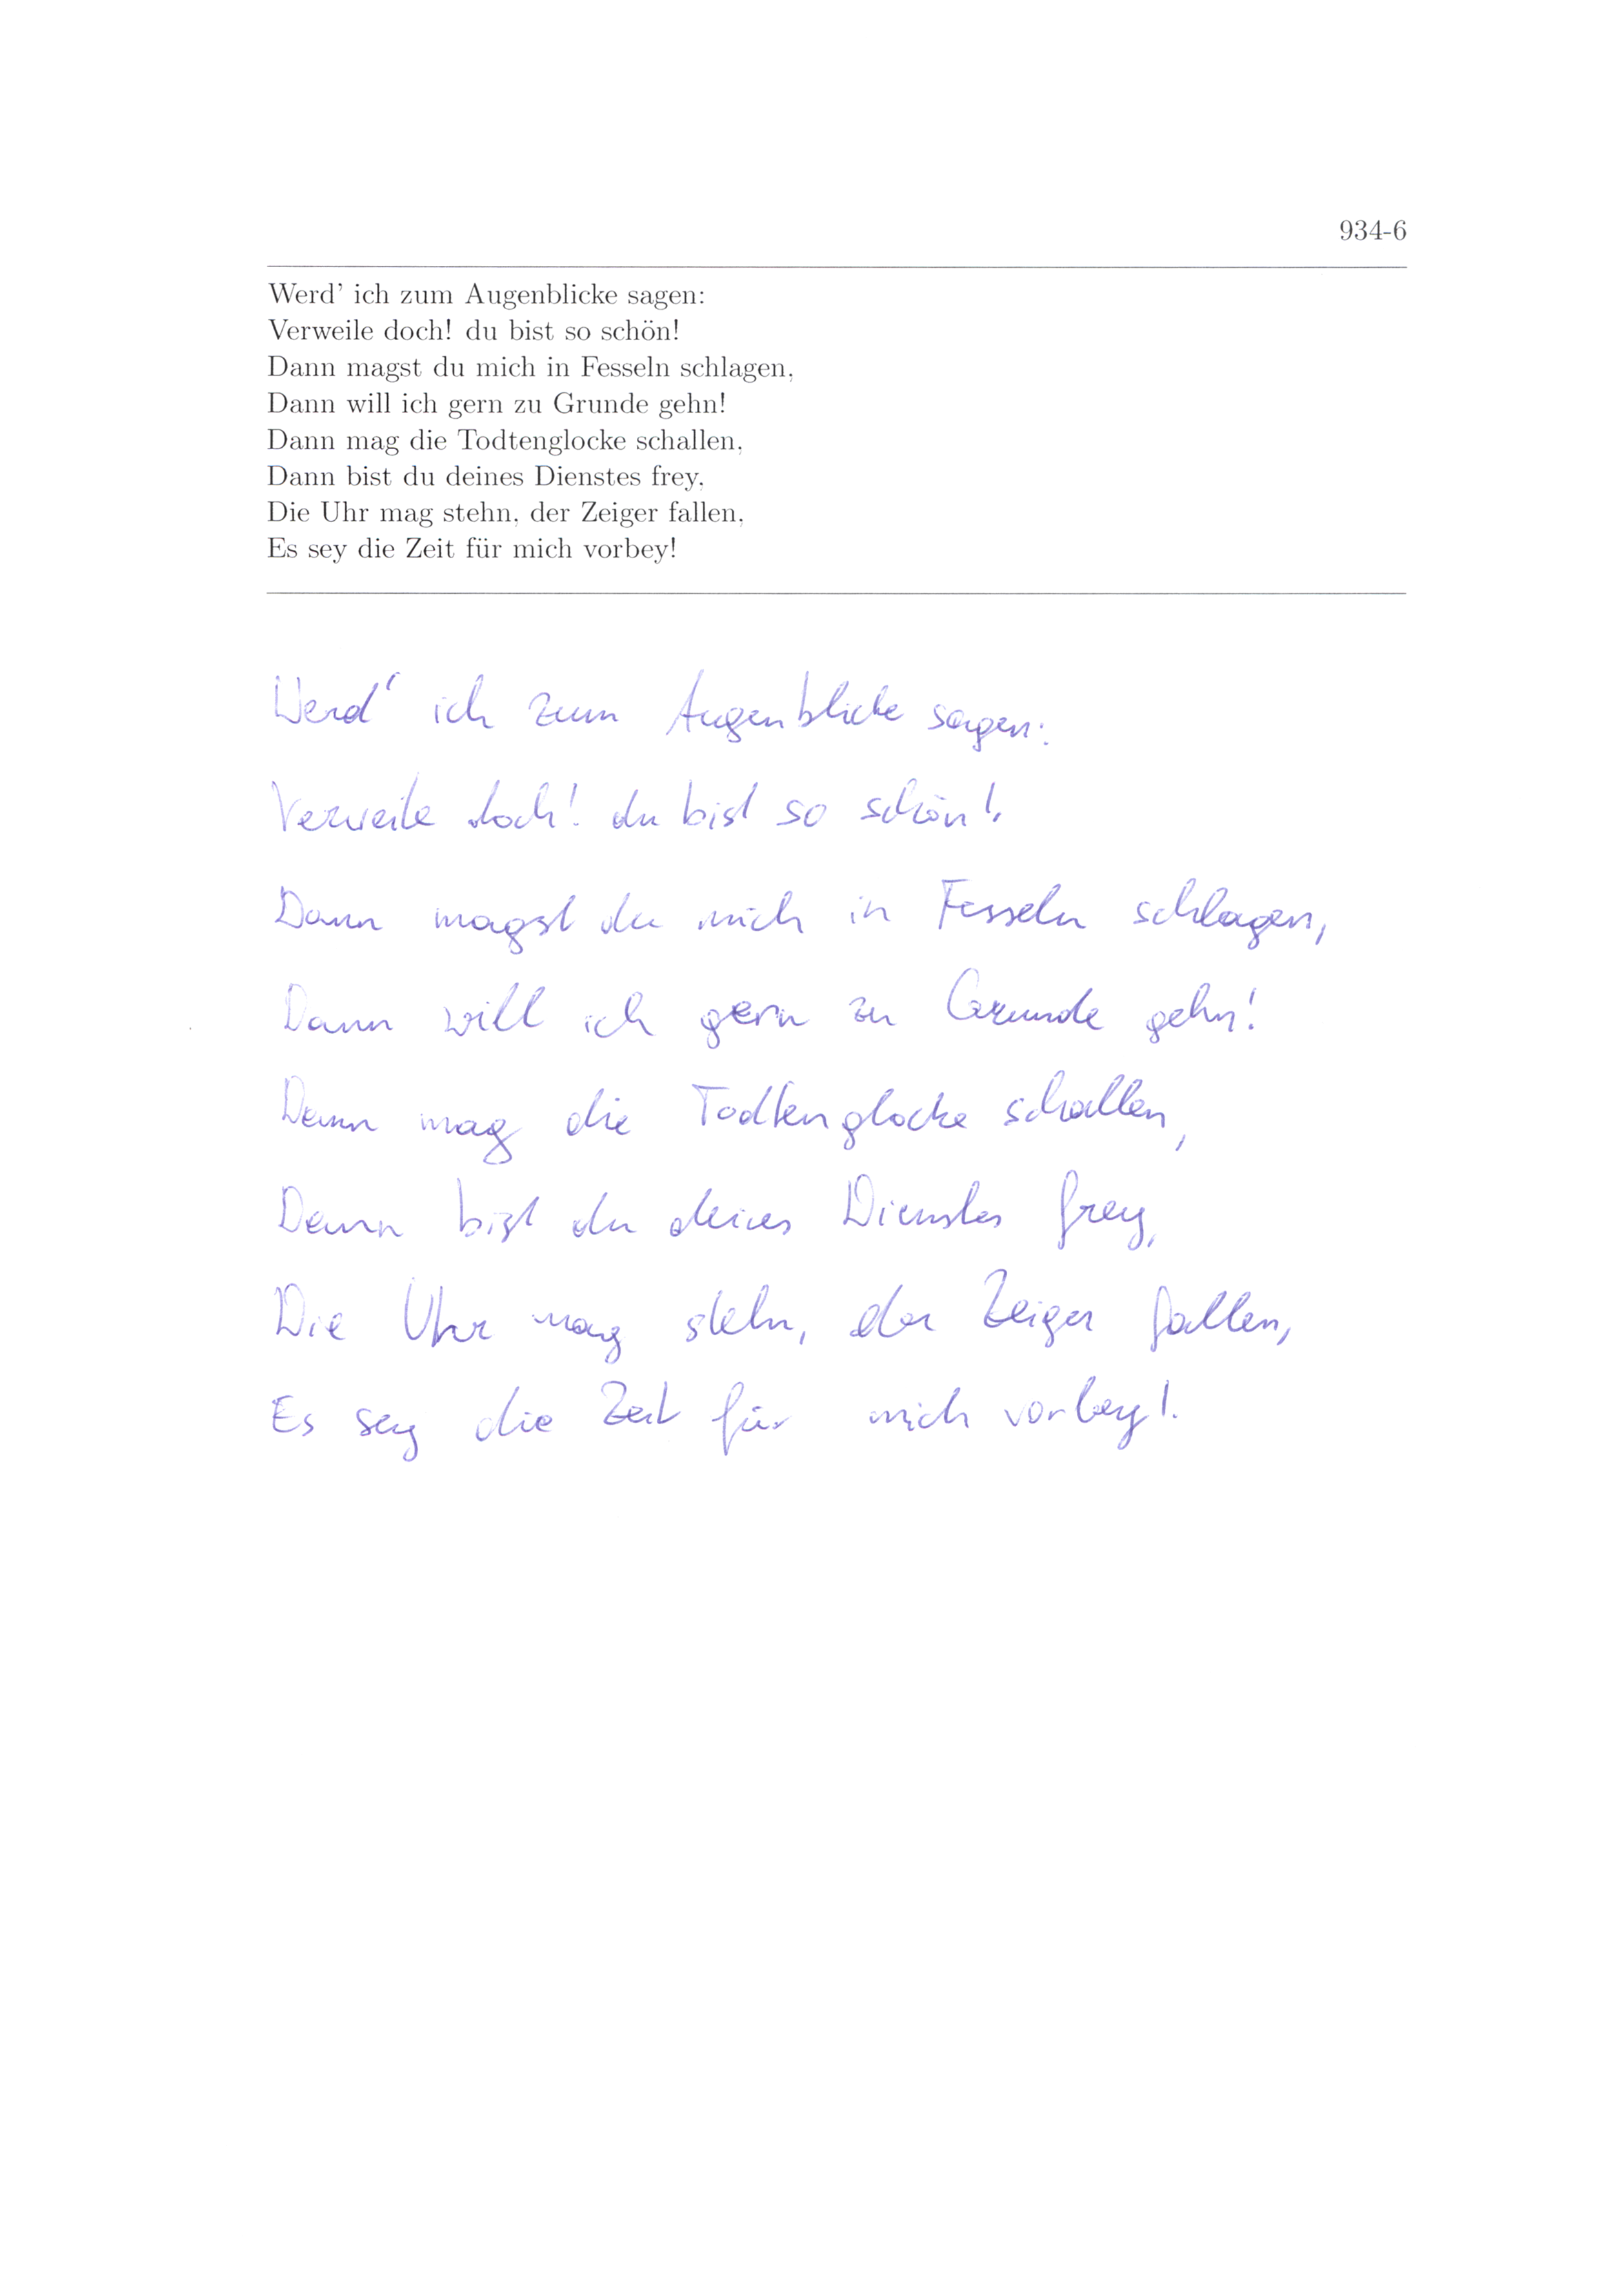 934-6
Werd' ich zum Augenblicke sagen:
Verweile doch! du bist so schön!
Dann magst du mich in Fesseln schlagen,
Dann will ich gern zu Grunde gehn!
Dann mag die Todtenglocke schallen,
Dann bist du deines Dienstes frey,
Die Uhr mag stehn, der Zeiger fallen,
Es sey die Zeit für mich vorbey!
Werd' ich zum Augenblicke sagen:
Verweile doch! du bist so schön!
Dann magst du mich in Fesseln schlagen,
Dann will ich gern zu Grunde gehn!
Dann mag die Todtenglocke schallen,
Dann bist du deines Dienstes frey,
Die Uhr mag stehn, der Zeiger fallen,
Es sey die Zeit für mich vorbey!